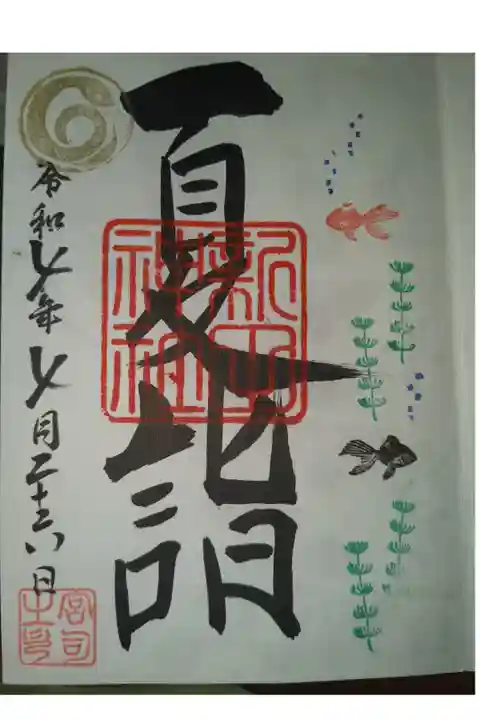 夏詣
神社
令和七年七月二十六日
宮司之印